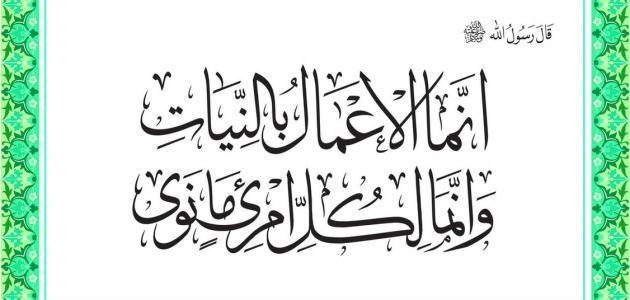 قَالَ رَسُولُ الله ﷺ
انَّمَا الاَعْمَالُ بُالنِّيَاتِ
وَانَّمَا لِكُلِّ امْرِئٍ مَانَوٰى